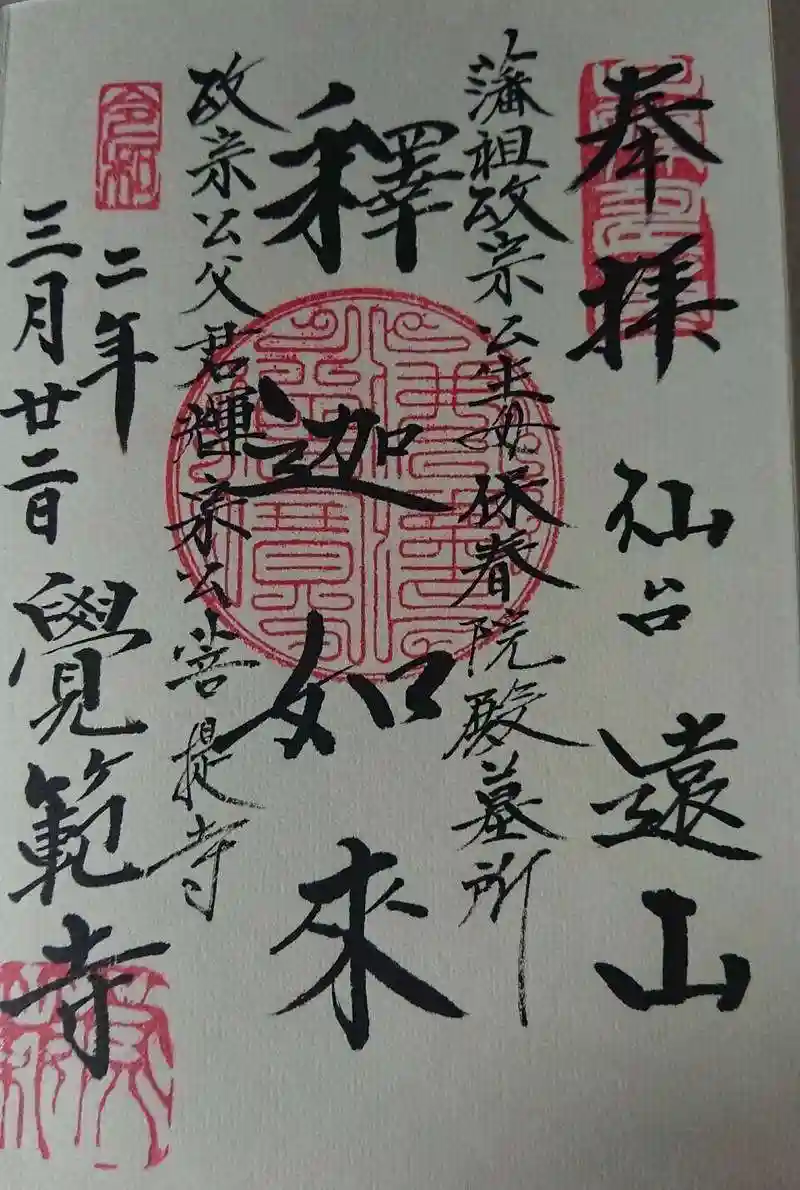 奉拝 仙台 遠山
藩祖政宗公生母保春院殿墓所
釋迦如來
佛法僧寶
政宗公父君輝宗公菩提寺
令和二年
三月廿二日 覺範寺